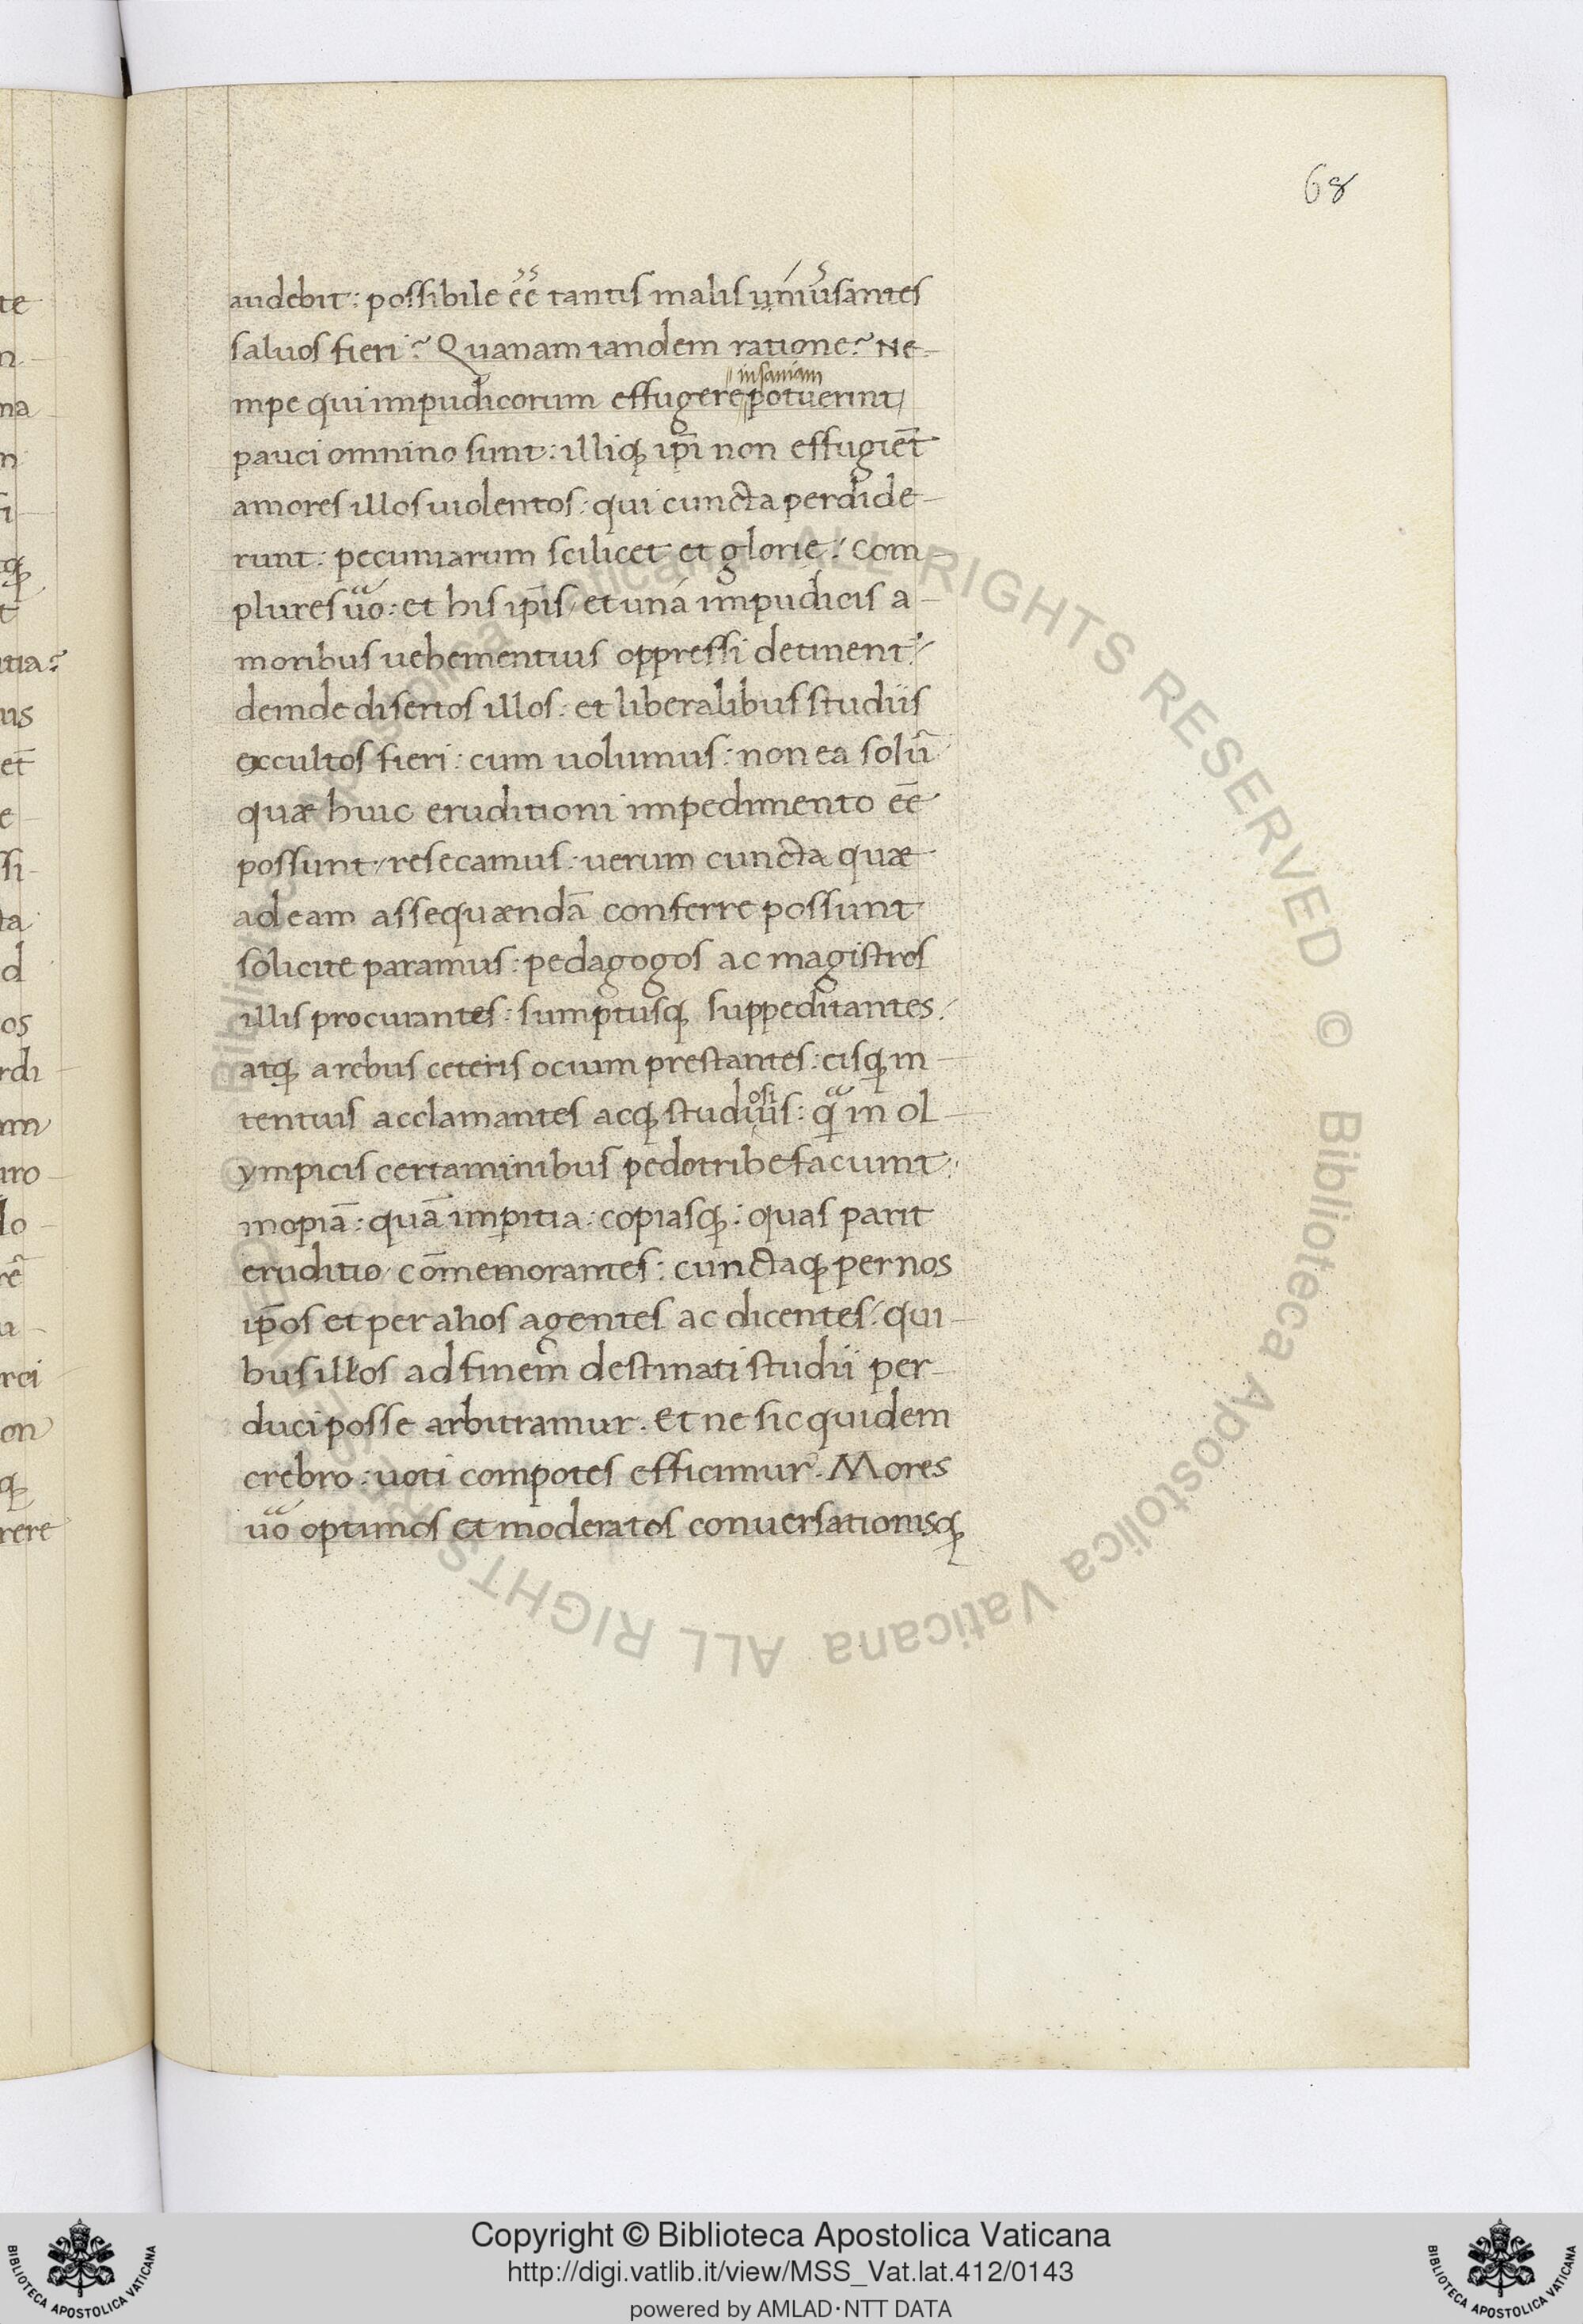 68
audebit: possibile ēē tantis malis uniusantes
saluos fieri? Quanam tandem ratione? Ne-
insaniam
mpe qui impudicorum effugere potuerint/
pauci omnino sunt: illiqꝫ ip̄i non effugiēt
amores illos uiolentos: qui cuncta perdide-
runt: pecuniarum scilicet et glorię: com-
plures uo: et his ip̄is/ et una impudicis a-
moribus uehementius oppressi detinent:
deinde disertos illos: et liberalibus studiis
excultos fieri: cum uolumus: non ea solū
quæ huic eruditioni impedimento eē
possunt/ resecamus: uerum cuncta quæ
ad eam assequændā conferre possunt
solicite paramus: pedagogos ac magistros
illis procurantes: sumptusqꝫ suppeditantes:
atqꝫ a rebus ceteris ocium prestantes: eisqꝫ in-
osi
tentius acclamantes acqꝫ studius: q̄ in ol-
ympicis certaminibus pedotribe faciunt:
inopiā: quā imꝑitia: copiasqꝫ: quas parit
eruditio/ cōmemorantes: cunctaqꝫ per nos
ip̄os et per alios agentes ac dicentes: qui-
bus illos ad finem destinati studii per-
duci posse arbitramur. Et ne sic quidem
crebro: uoti compotes efficimur. Mores
uo optimos et moderatos conuersationisqꝫ
te
n-
na
n
si
qꝫ
t
itia?
uis
et̄
e-
ssi-
ta
d
os
rdi
um
uro-
lo-
rē
u-
rei
on
qꝫ
rere
© Biblioteca Apostolica Vaticana ALL RIGHTS RESERVED © Biblioteca Apostolica Vaticana ALL RIGHTS RESERVED
Copyright © Biblioteca Apostolica Vaticana
http://digi.vatlib.it/view/MSS_Vat.lat.412/0143
powered by AMLAD·NTT DATA
BIBLIOTECA APOSTOLICA VATICANA
BIBLIOTECA APOSTOLICA VATICANA